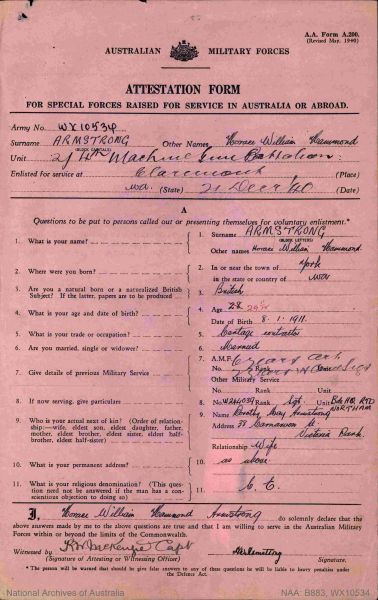 A.A. Form A.200.
(Revised May, 1940)
AUSTRALIAN MILITARY FORCES
ATTESTATION FORM
FOR SPECIAL FORCES RAISED FOR SERVICE IN AUSTRALIA OR ABROAD.
Army No. WX10534
Surname ARMSTRONG Other Names Horace William Hammond
(BLOCK CAPITALS)
Unit 2/4th Machine Gun Battalion
Enlisted for service at Claremont (Place)
WA. (State) 21 Decr 40 (Date)
A
Questions to be put to persons called out or presenting themselves for voluntary enlistment.*
1. What is your name?
1. Surname ARMSTRONG
(BLOCK LETTERS)
Other names Horace William Hammond
2. Where were you born?
2. In or near the town of York
in the state or country of WA
3. Are you a natural born or a naturalized British Subject? If the latter, papers are to be produced
3. British
4. What is your age and date of birth?
4. Age 28
Date of Birth 8.1.1911.
5. What is your trade or occupation?
5. Cartage contractor
6. Are you married, single or widower?
6. Married
7. Give details of previous Military Service
7. A.M.F. 6 years art.
No. Rank Unit
Other Military Service
No. Rank Unit
8. If now serving, give particulars
8. No. Rank Sgt. Unit
NORTHAM
9. Who is your actual next of kin? (Order of relationship:—wife, eldest son, eldest daughter, father, mother, eldest brother, eldest sister, eldest half-brother, eldest half-sister)
9. Name Dorothy May Armstrong
Address 38 Carnarvon St.
Victoria Park.
Relationship Wife
10. What is your permanent address?
10. as above
11. What is your religious denomination? (This question need not be answered if the man has a conscientious objection to doing so)
11. C.E.
I, Horace William Hammond Armstrong do solemnly declare that the
above answers made by me to the above questions are true and that I am willing to serve in the Australian Military
Forces within or beyond the limits of the Commonwealth.
Witnessed by MacKenzie Capt
(Signature of Attesting or Witnessing Officer)
Signature.
* The person will be warned that should he give false answers to any of these questions he will be liable to heavy penalties under the Defence Act.
National Archives of Australia
NAA: B883, WX10534